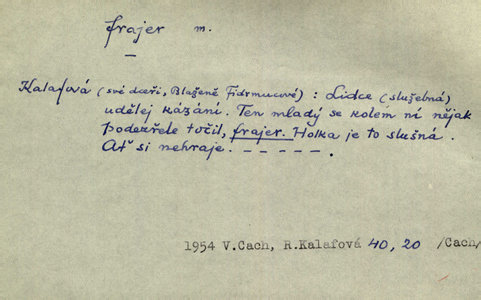 frajer m.
—
Kalafová (své dceři, Blaženě Fidrmucové) : Lidce (služebná)
udělej kázání. Ten mladý se kolem ní nějak
podezřele točil, frajer. Holka je to slušná.
Ať si nehraje. - - - - - .
1954 V.Cach, R.Kalafová 40, 20 /Cach/